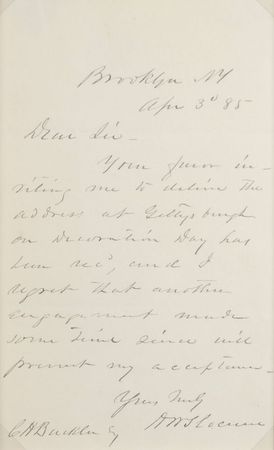 Brooklyn NY
Apr 3d 85
Dear Sir -
Your favor in-
viting me to deliver the
address at Gettysburgh
on Decoration Day has
been recd, and I
regret that another
engagement made
some time since will
prevent my acceptance -
Yours Truly
H W Slocum
C H Buehler Esq